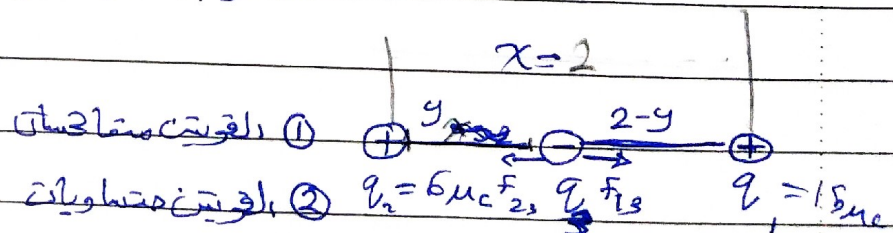 x=2
① القوتين متعاكستان y 2-y
② القوتين متساويات q₂=6μc F₂₃ q₃ F₁₃ q₁=15μc